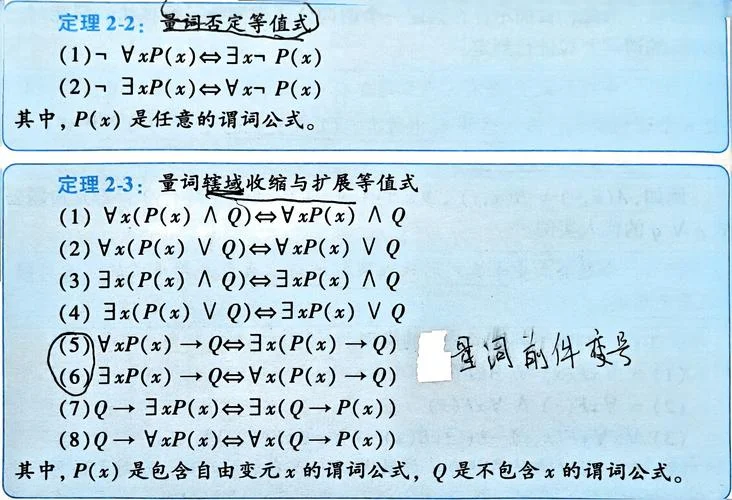 定理 2-2：量词否定等值式
(1)¬ ∀xP(x)⇔∃x¬ P(x)
(2)¬ ∃xP(x)⇔∀x¬ P(x)
其中，P(x) 是任意的谓词公式。
定理 2-3：量词辖域收缩与扩展等值式
(1) ∀x(P(x) ∧ Q)⇔∀xP(x) ∧ Q
(2) ∀x(P(x) ∨ Q)⇔∀xP(x) ∨ Q
(3) ∃x(P(x) ∧ Q)⇔∃xP(x) ∧ Q
(4) ∃x(P(x) ∨ Q)⇔∃xP(x) ∨ Q
(5) ∀xP(x) → Q⇔∃x(P(x) → Q)
(6) ∃xP(x) → Q⇔∀x(P(x) → Q)
量词前件变号
(7) Q → ∃xP(x)⇔∃x(Q → P(x))
(8) Q → ∀xP(x)⇔∀x(Q → P(x))
其中，P(x) 是包含自由变元 x 的谓词公式，Q 是不包含 x 的谓词公式。